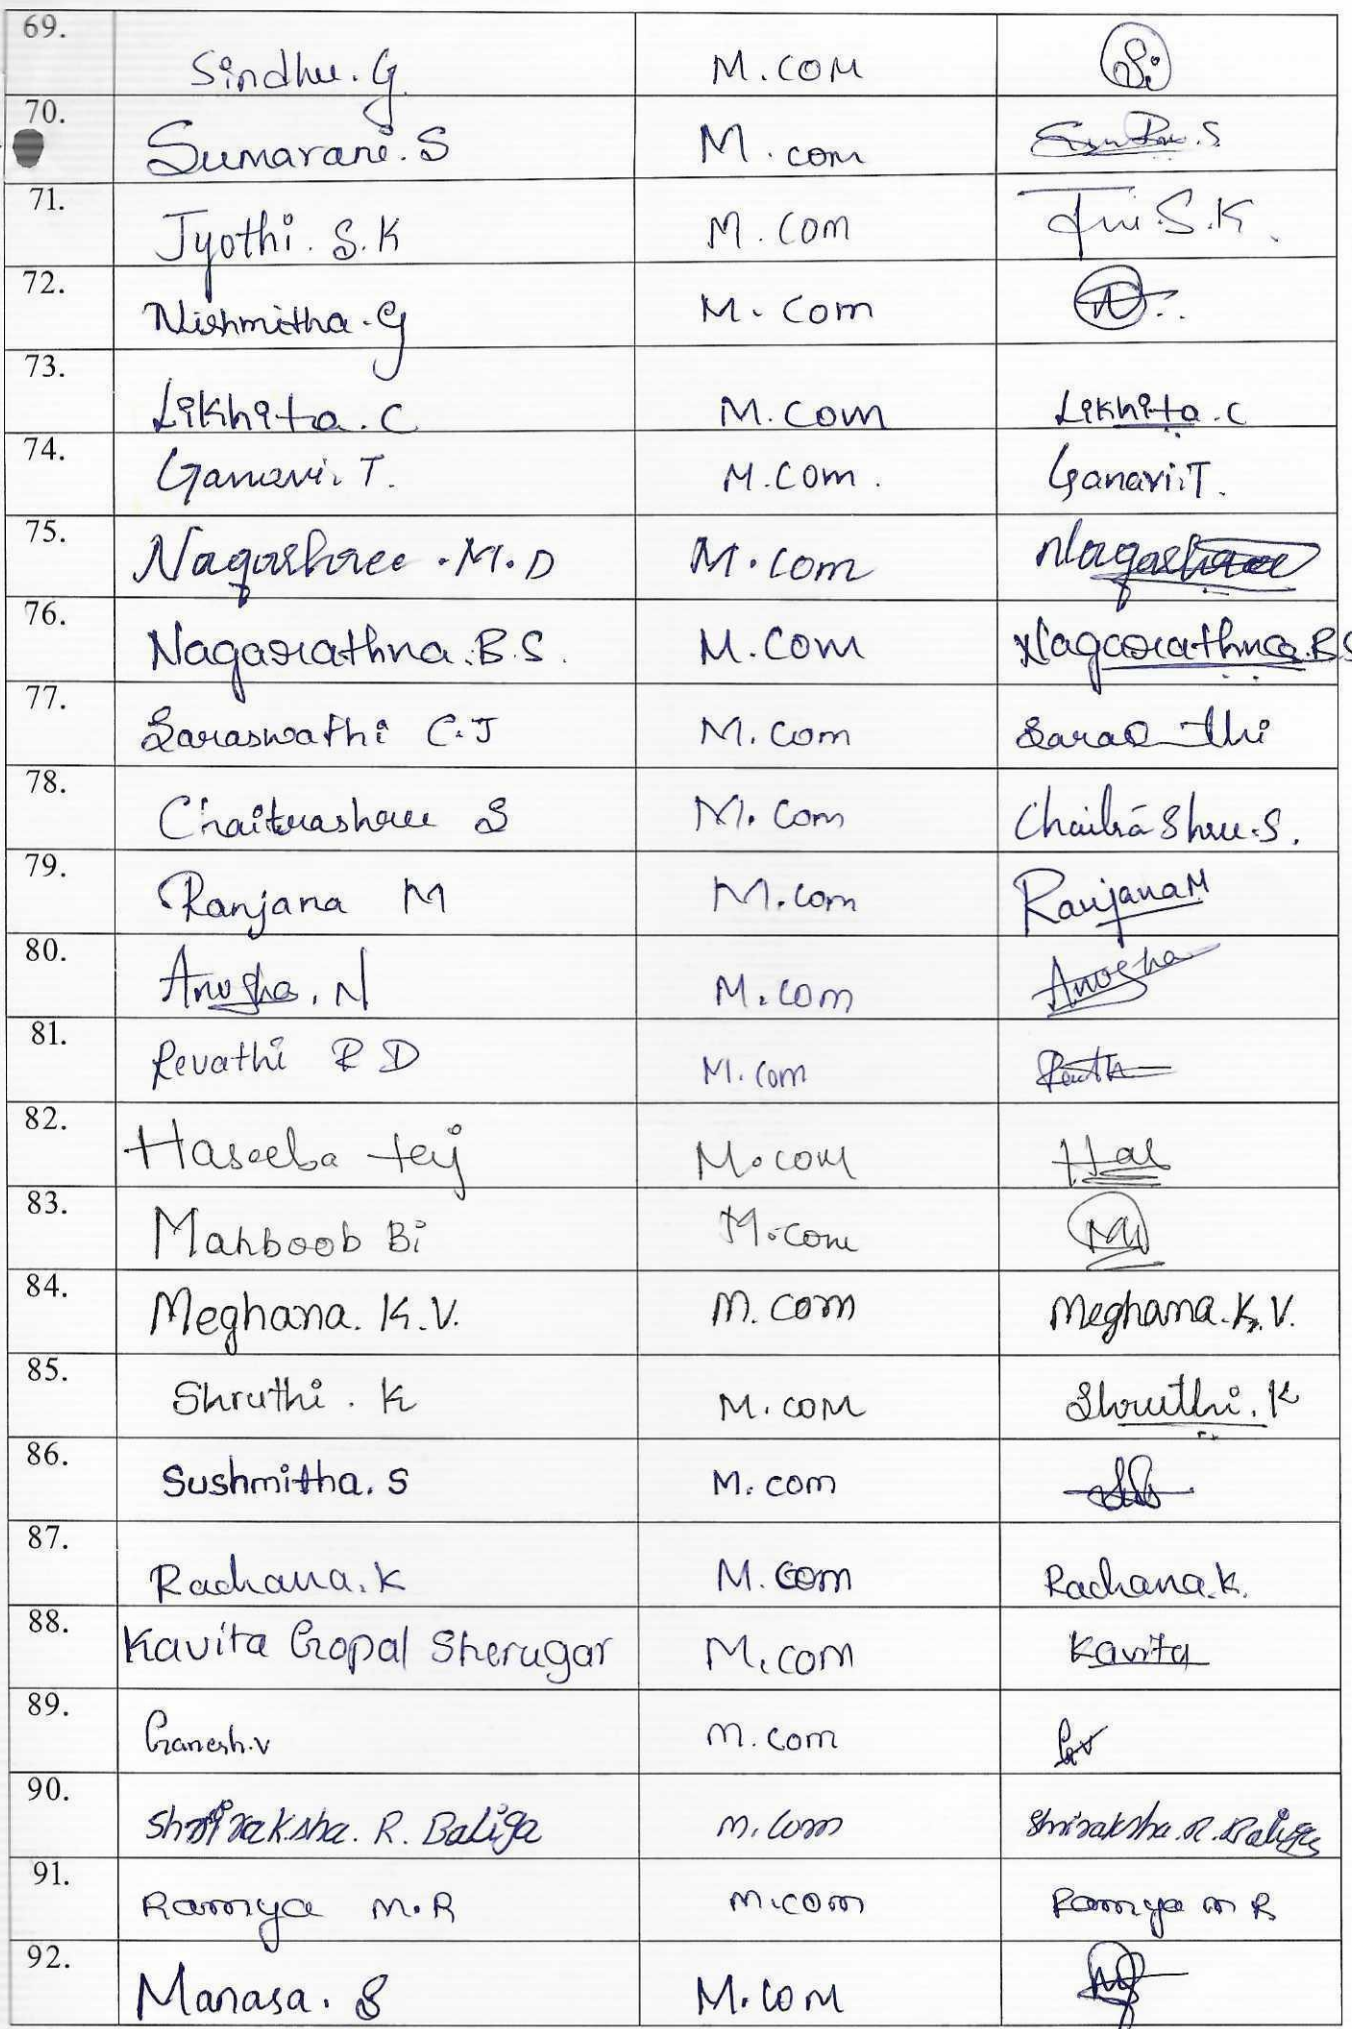 69. Sindhu.G. M.COM Si
70. Sumarani.S M.com
71. Jyothi.S.K M.Com
72. Nishmitha.G M.Com
73. Likhita.C M.Com Likhita.C
74. Ganavi.T. M.Com. Ganavi.T.
75. Nagashree.M.D M.com Nagashree
76. Nagarathna.B.S. M.Com Nagarathna.B.S
77. Saraswathi C.J M.Com
78. Chaitrashree S M.Com Chaitrashree.S.
79. Ranjana M M.Com Ranjana M
80. Anusha.N M.com Anusha
81. Revathi R D M.Com
82. Haseeba tej M.com Has
83. Mahboob Bi M.com
84. Meghana.K.V. M.com Meghana.K.V.
85. Shruthi.K M.COM Shruthi.K
86. Sushmitha.S M.com
87. Rachana.K M.Com Rachana.K.
88. Kavita Gopal Sherugar M.com Kavita
89. Ganesh.v M.com Gv
90. Shriraksha.R.Baliga M.Com Shriraksha.R.Baliga
91. Ramya M.R M.com Ramya M R
92. Manasa.S M.COM